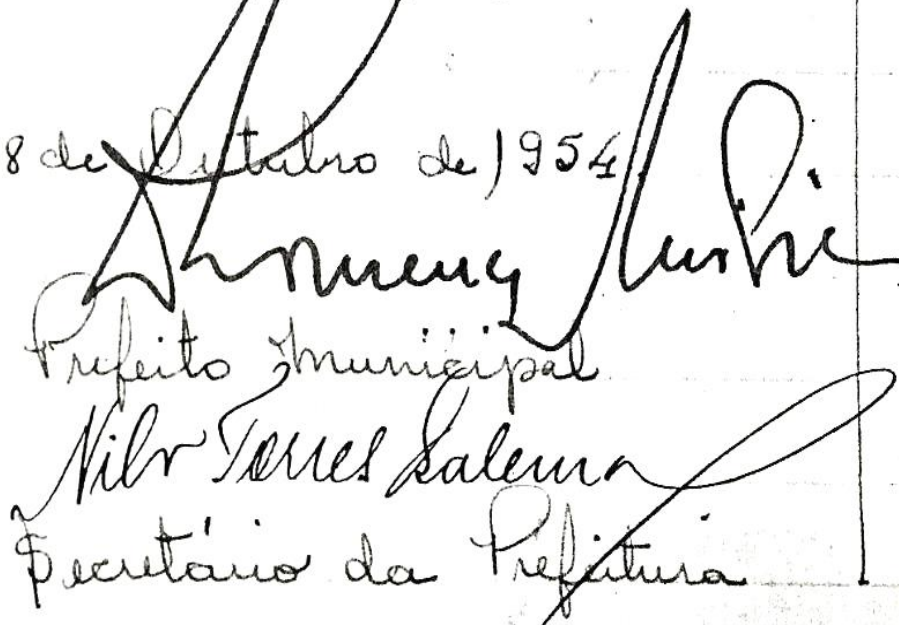 8 de Outubro de 1954
Prefeito Municipal
Nilo Torres Salema
Secretário da Prefeitura